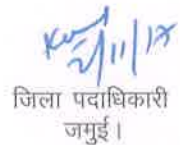 2/11/17
जिला पदाधिकारी
जमुई।